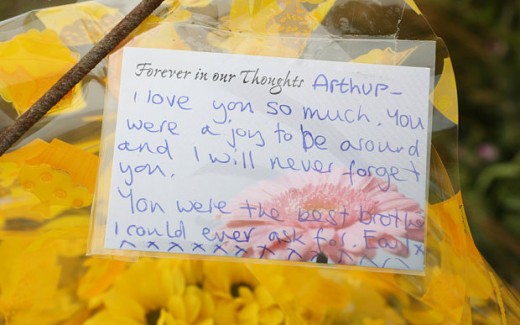 Forever in our Thoughts Arthur-
I love you so much. You
were a joy to be around
and I will never forget
you.
You were the best brothe
I could ever ask for.
x x x x x x x x x x